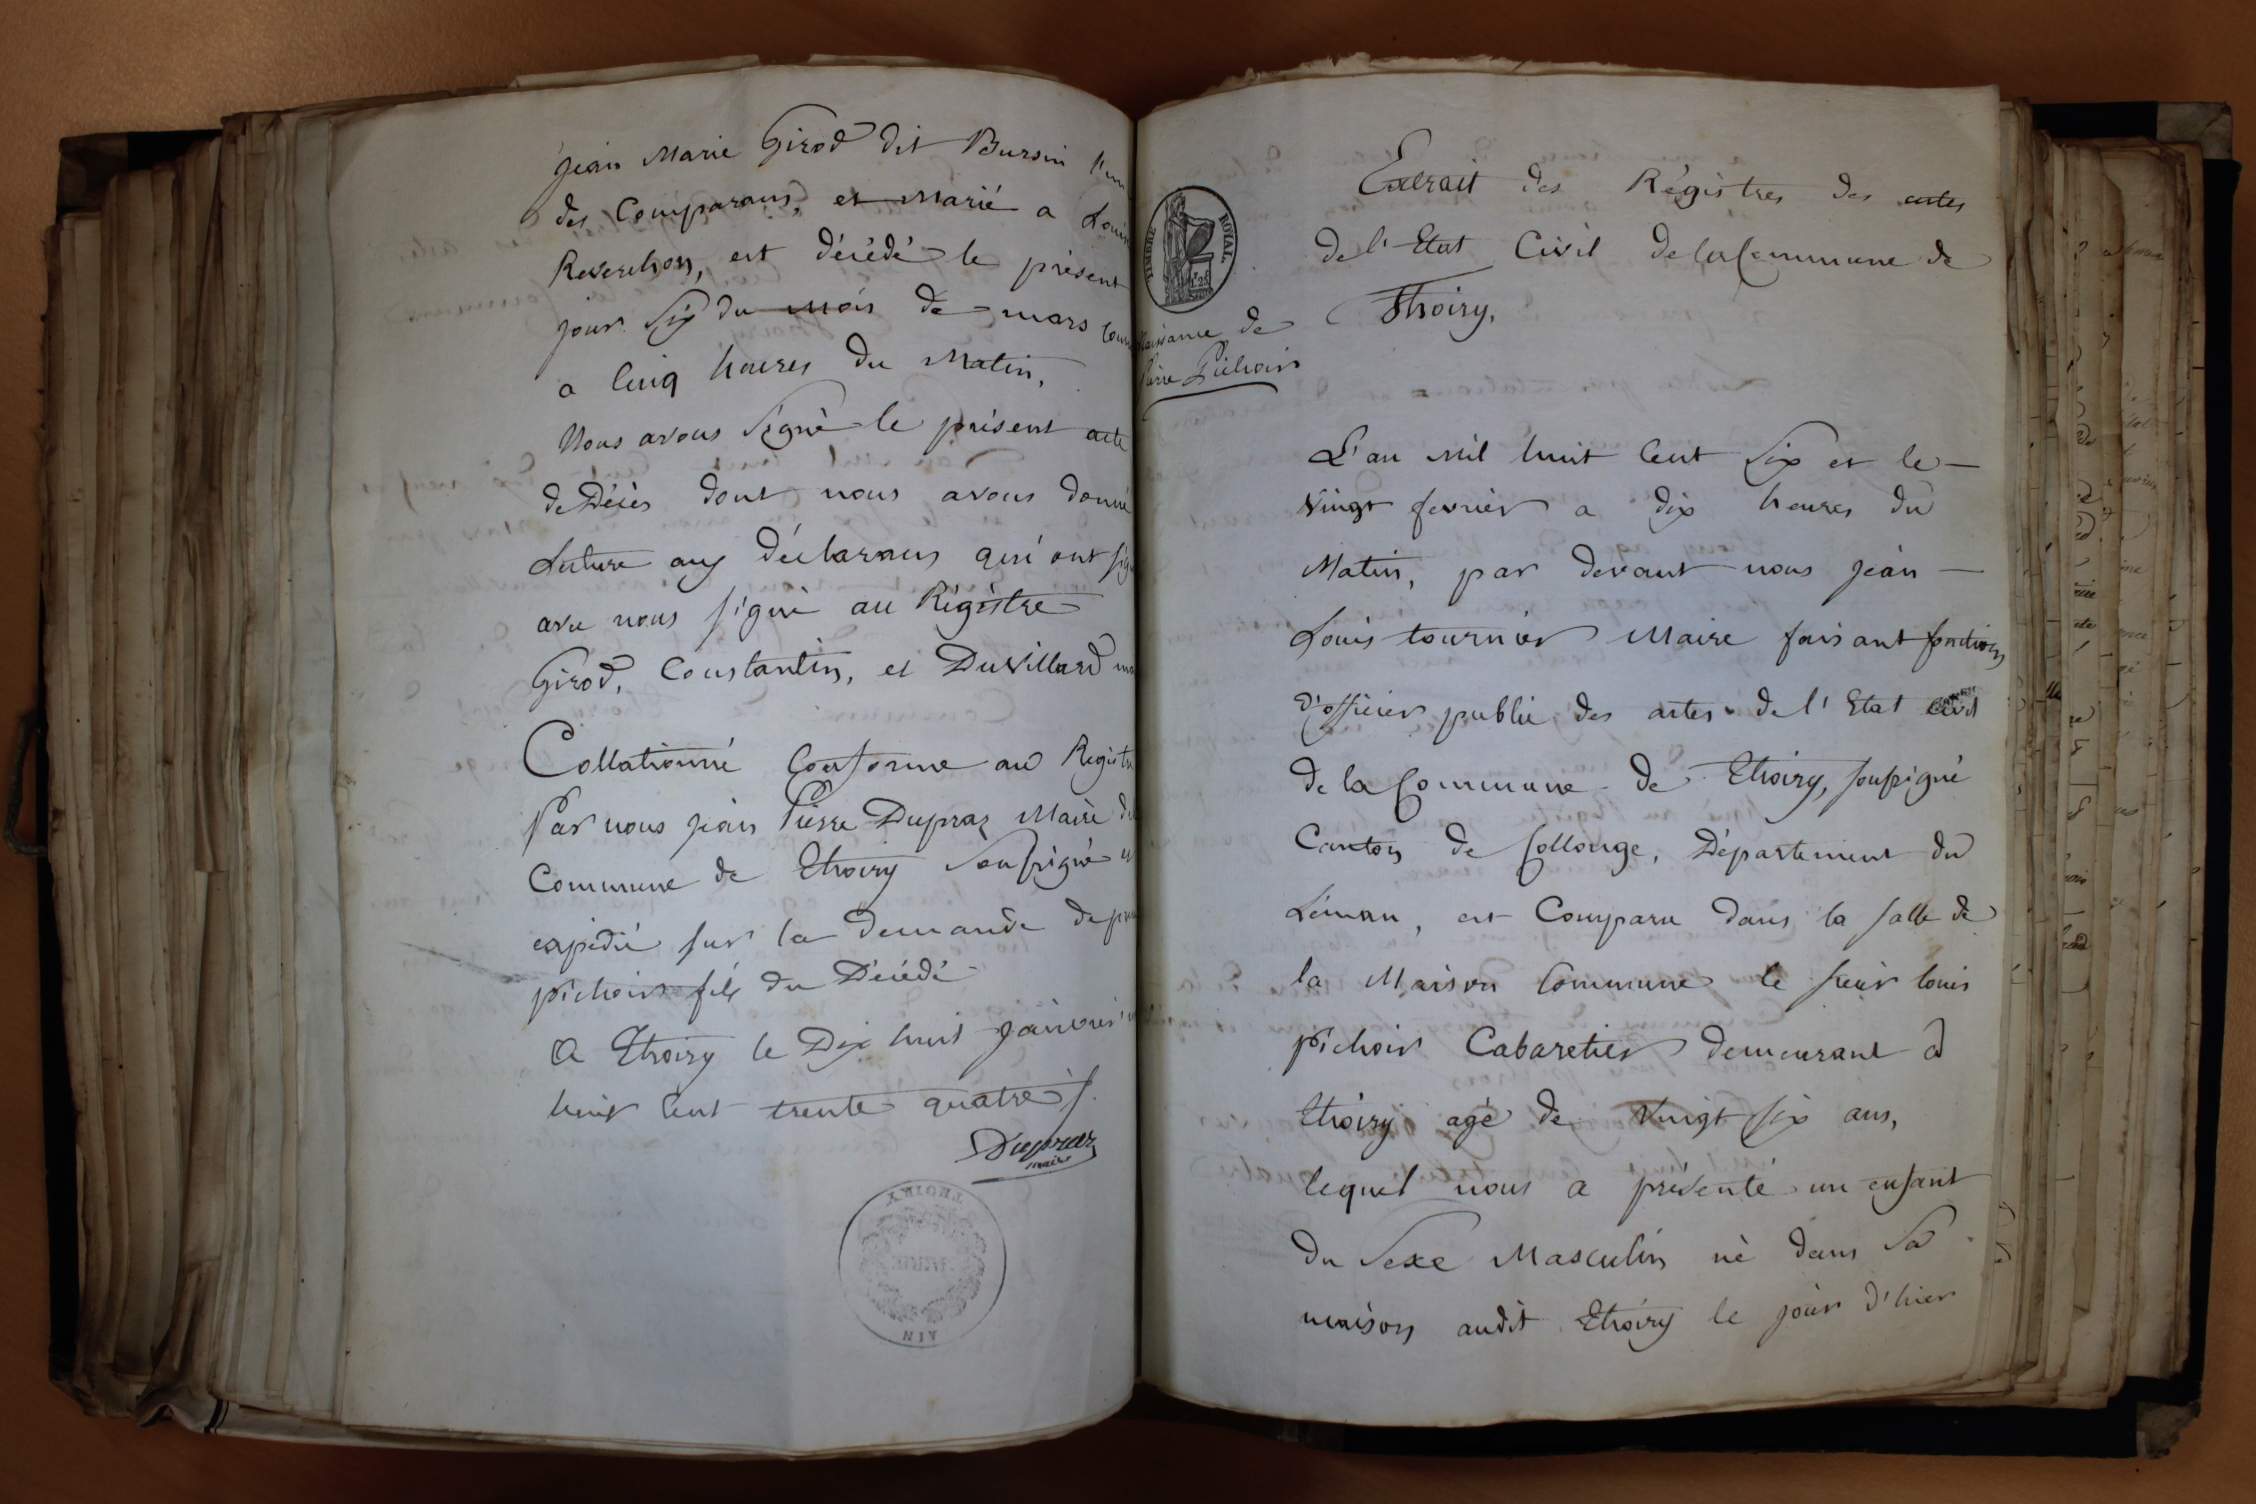 jean Marie Girod dit Bursin l'un
des Comparans, et Marié a Louise
Reverchon, est décédé le présent
jour Six du mois de mars
a Cinq heures du Matin,
Nous avons Signé le présent acte
de Décès dont nous avons donné
Lecture aux déclarans qui ont
avec nous signé au Régistre
Girod, Constantin, et Duvillard
Collationné Conforme au Registre
Par nous jean Pierre Dupraz Maire
Commune de Thoiry Soussigné et
expédié sur la demande de
pichoir fils du Décédé
A Thoiry le Dix huit janvier
huit Cent trente quatre
Dupraz
maire
THOIRY
MAIRIE
AIN
TIMBRE ROYAL
1.25
Naissance de
Pierre Pichoir
Extrait des Régistres des actes
de l'Etat Civil de la Commune de
Thoiry,
L'an Mil huit Cent Six et le —
Vingt fevrier a dix heures du
Matin, par devant nous jean —
Louis tournier Maire faisant fonctions
d'officier public des actes de l'Etat Civil
de la Commune de Thoiry, soussigné
Canton de Collonge, Département du
Léman, est Comparu dans la salle de
la Maison Commune le sieur louis
pichoir Cabaretier demeurant a
thoiry agé de Vingt six ans,
lequel nous a présenté un enfant
du Sexe Masculin né dans Sa
maison audit Thoiry le jour d'hier